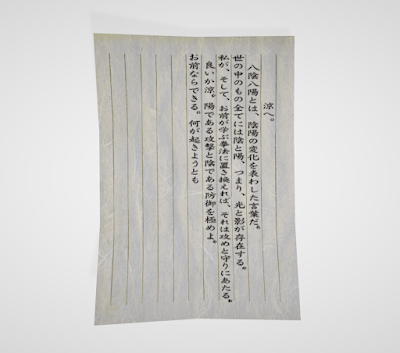 涼へ。
八陰八陽とは、陰陽の変化を表わした言葉だ。
世の中のもの全てには陰と陽、つまり、光と影が存在する。
私が、そして、お前が学ぶ拳法に置き換えれば、それは攻めと守りにあたる。
良いか涼。陽である攻撃と陰である防御を極めよ。
お前ならできる。何が起きようとも